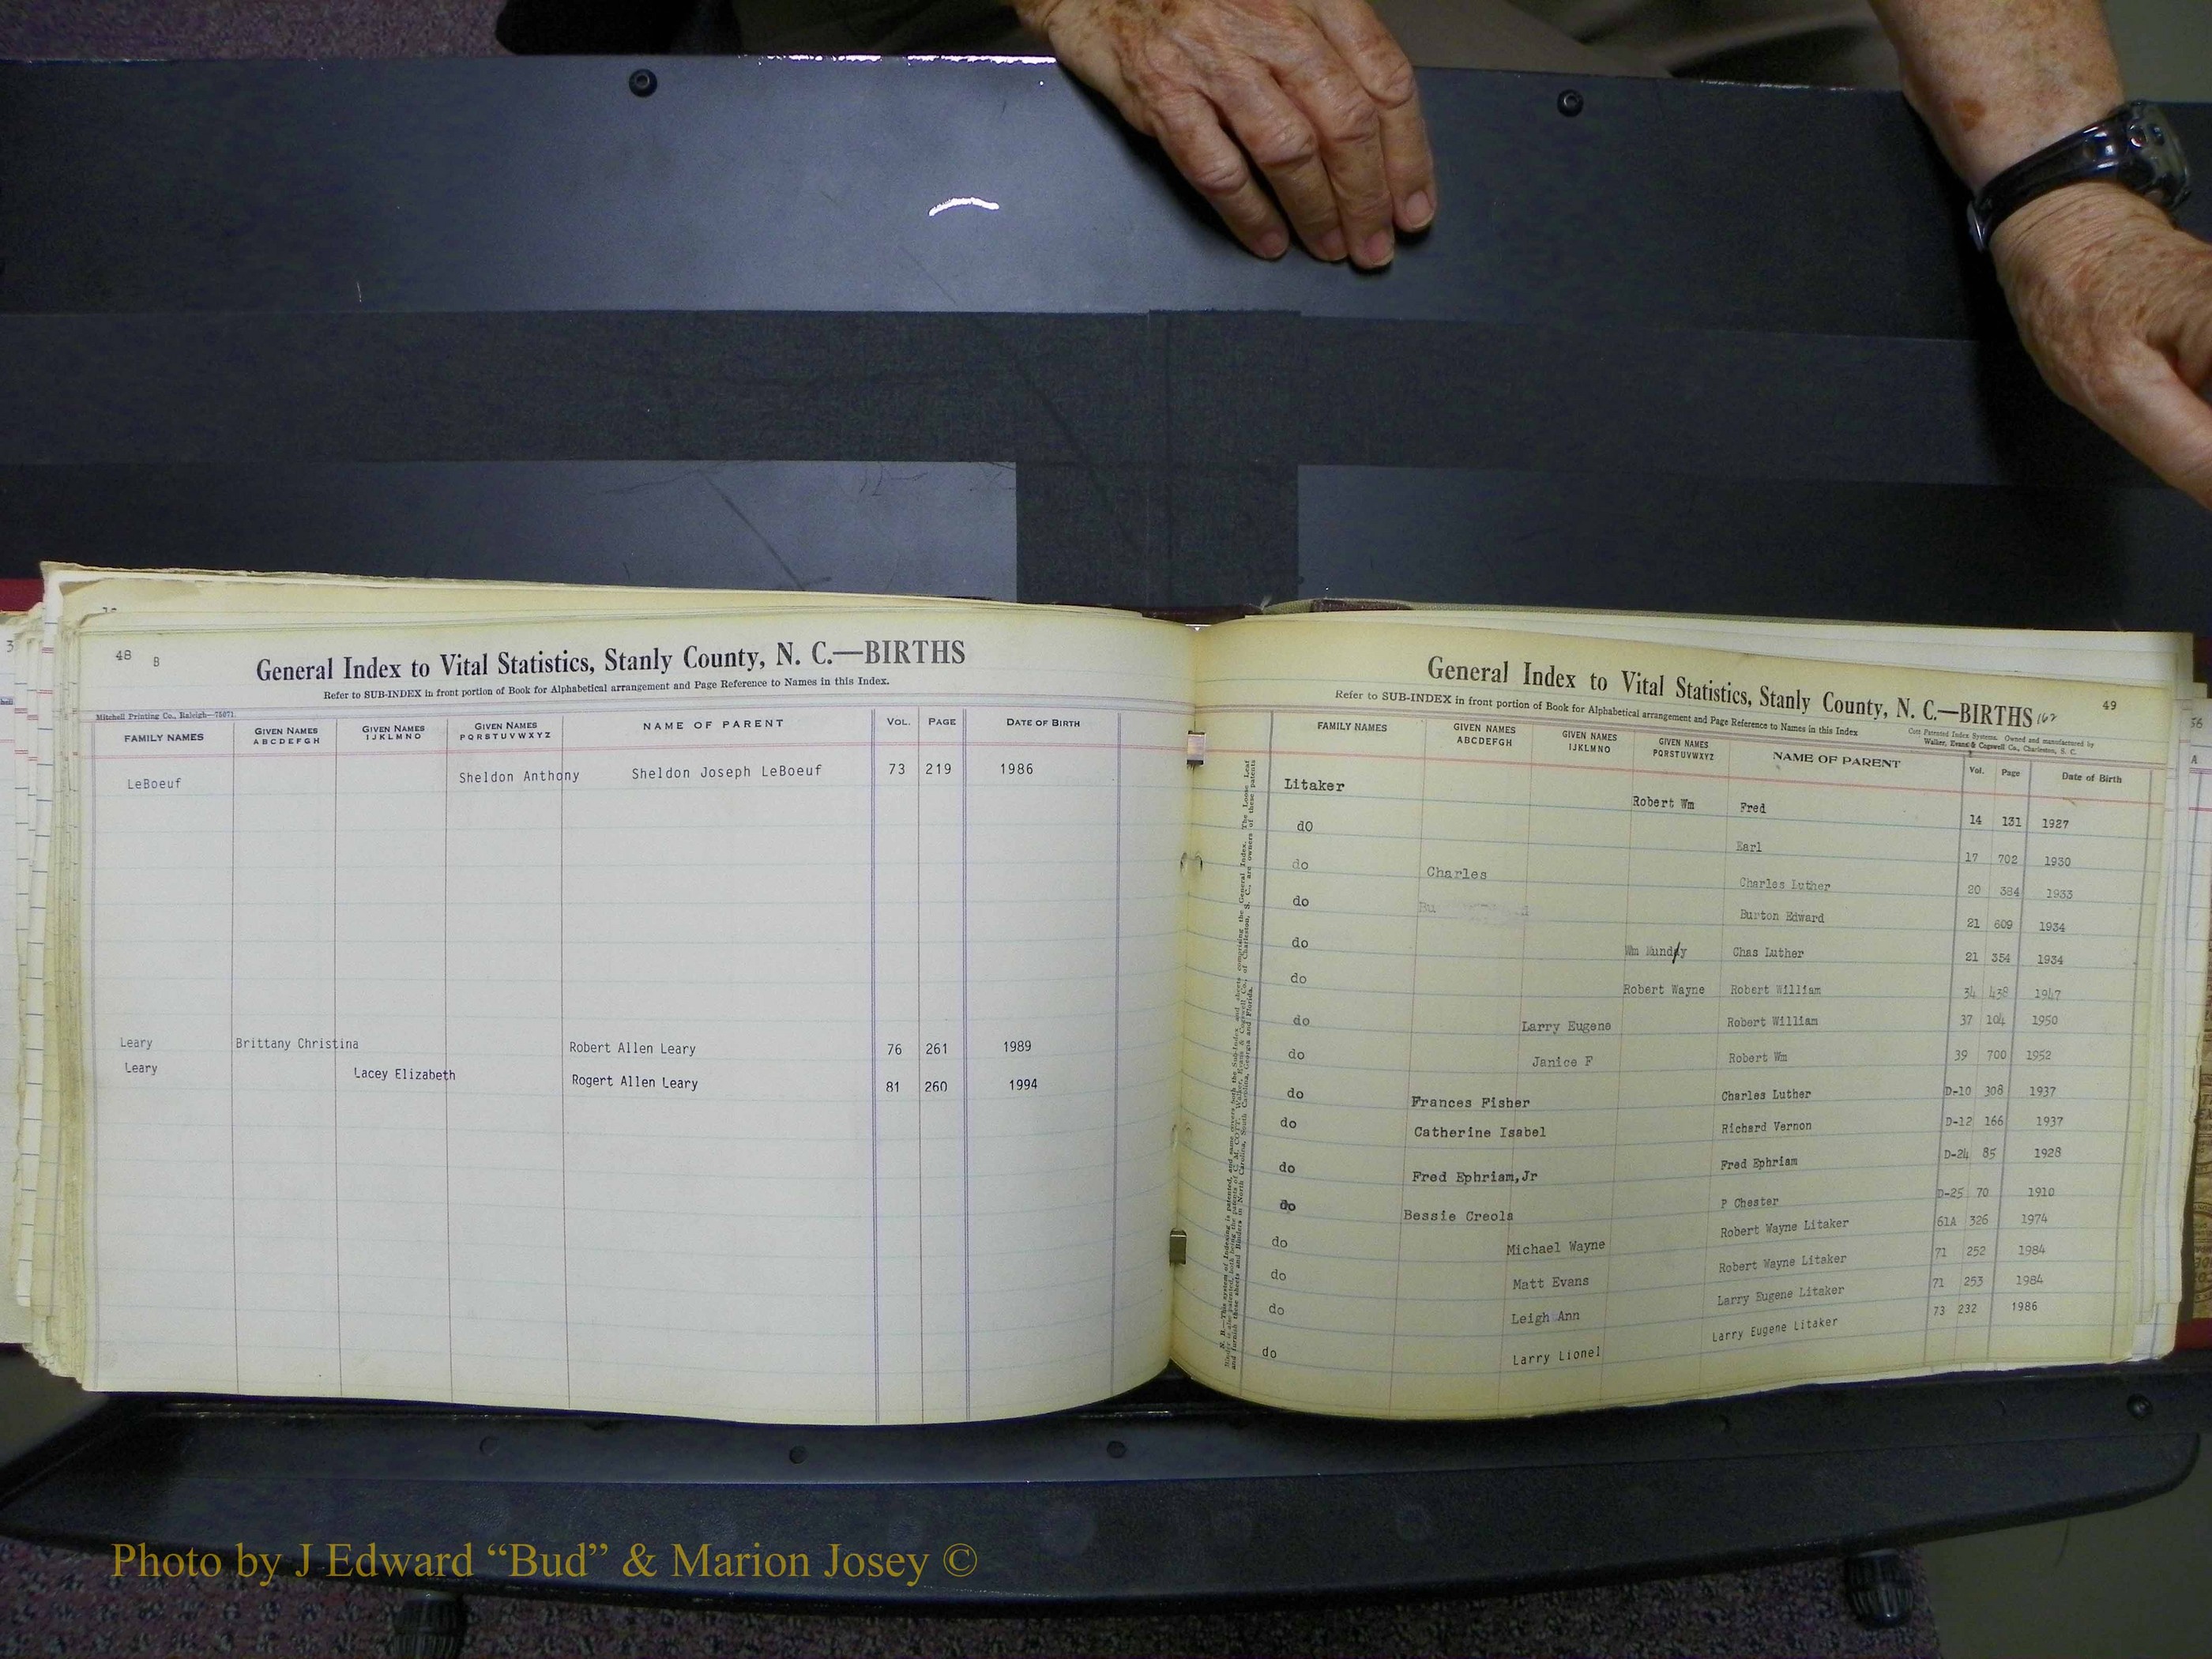 48 B
General Index to Vital Statistics, Stanly County, N. C.—BIRTHS
Refer to SUB-INDEX in front portion of Book for Alphabetical arrangement and Page Reference to Names in this Index.
Mitchell Printing Co., Raleigh—75071
FAMILY NAMES GIVEN NAMES ABCDEFGH GIVEN NAMES IJKLMNO GIVEN NAMES PQRSTUVWXYZ NAME OF PARENT VOL. PAGE DATE OF BIRTH
LeBoeuf Sheldon Anthony Sheldon Joseph LeBoeuf 73 219 1986
Leary Brittany Christina Robert Allen Leary 76 261 1989
Leary Lacey Elizabeth Rogert Allen Leary 81 260 1994
49
General Index to Vital Statistics, Stanly County, N. C.—BIRTHS 162
Refer to SUB-INDEX in front portion of Book for Alphabetical arrangement and Page Reference to Names in this Index
Cott Patented Index Systems. Owned and manufactured by
Walker, Evans & Cogswell Co., Charleston, S. C.
FAMILY NAMES GIVEN NAMES ABCDEFGH GIVEN NAMES IJKLMNO GIVEN NAMES PQRSTUVWXYZ NAME OF PARENT Vol. Page Date of Birth
Litaker Robert Wm Fred 14 131 1927
dO Earl 17 702 1930
do Charles Charles Luther 20 384 1933
do Burton Edward 21 609 1934
do Wm Mundy Chas Luther 21 354 1934
do Robert Wayne Robert William 34 438 1947
do Larry Eugene Robert William 37 104 1950
do Janice F Robert Wm 39 700 1952
do Frances Fisher Charles Luther D-10 308 1937
do Catherine Isabel Richard Vernon D-12 166 1937
do Fred Ephriam,Jr Fred Ephriam D-24 85 1928
do Bessie Creola P Chester D-25 70 1910
do Michael Wayne Robert Wayne Litaker 61A 326 1974
do Matt Evans Robert Wayne Litaker 71 252 1984
do Leigh Ann Larry Eugene Litaker 71 253 1984
do Larry Lionel Larry Eugene Litaker 73 232 1986
Photo by J Edward “Bud” & Marion Josey ©